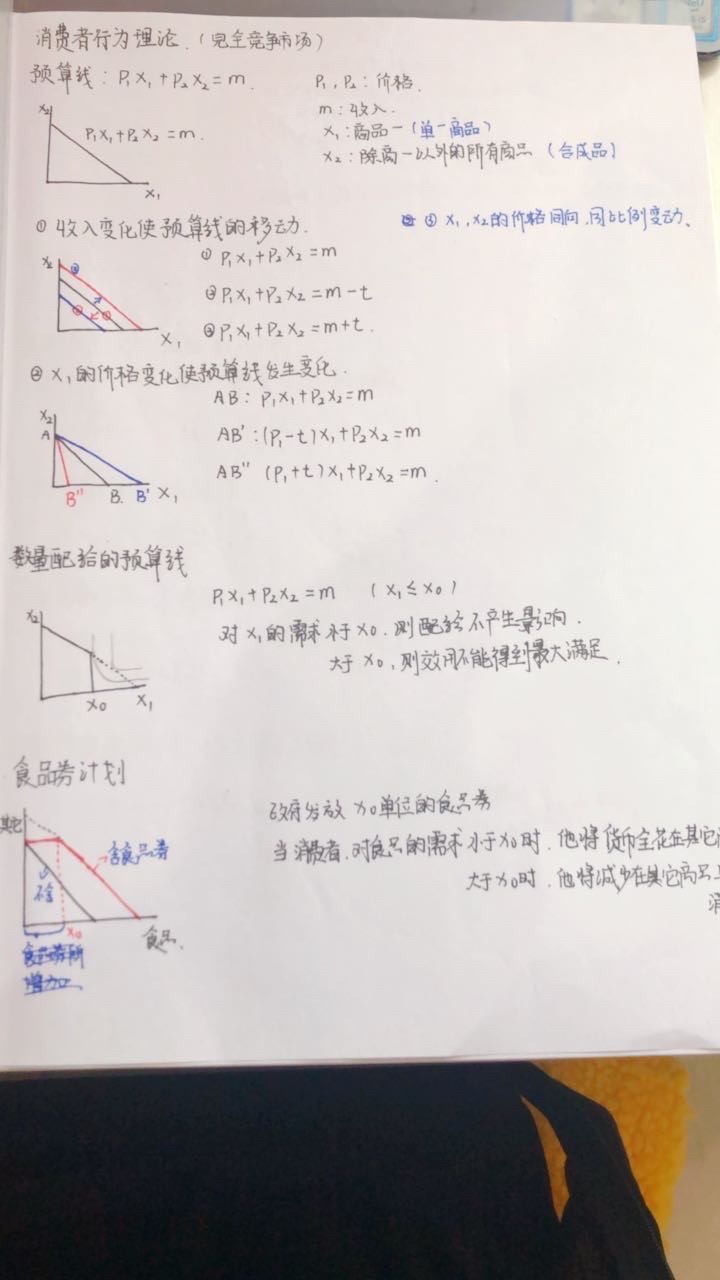 消费者行为理论.（完全竞争市场）
预算线：P₁X₁+P₂X₂=m.
P₁,P₂：价格.
m：收入.
x₁：商品一（单一商品）
x₂：除商一以外的所有商品（合成品）
X₂
P₁X₁+P₂X₂=m.
X₁
① 收入变化使预算线的移动.
③ X₁,X₂的价格同向,同比例变动、
X₂
X₁
① P₁X₁+P₂X₂=m
② P₁X₁+P₂X₂=m-t
③ P₁X₁+P₂X₂=m+t.
② X₁的价格变化使预算线发生变化.
AB：P₁X₁+P₂X₂=m
AB'：(P₁-t)X₁+P₂X₂=m
AB'' (P₁+t)X₁+P₂X₂=m.
X₂
A
B'' B. B' X₁
数量配给的预算线
P₁X₁+P₂X₂=m （X₁≤X₀）
对X₁的需求小于X₀,则配给不产生影响.
大于X₀,则效用不能得到最大满足.
X₂
X₀ X₁
食品券计划
政府发放X₀单位的食品券
当消费者.对食品的需求小于X₀时.他将货币全花在其它
大于X₀时.他将减少在其它商品上
消
其它
含食品券
不含
X₀
食品.
食品券所
增加